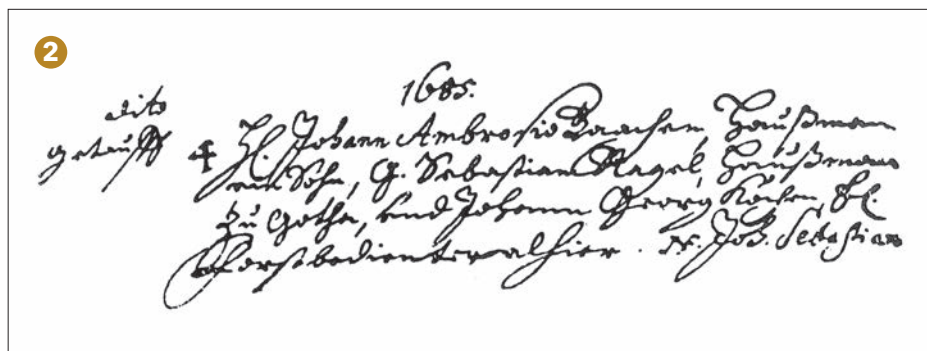 2
1685.
dito
getaufft
4 H. Johann Ambrosio Baachen, Haußmann
ein Sohn, G. Sebastian Nagel, Haußmann
zu Gotha, und Johann Georg Kochen, F.
Forstbedienter alhier. N. Joh. Sebastian